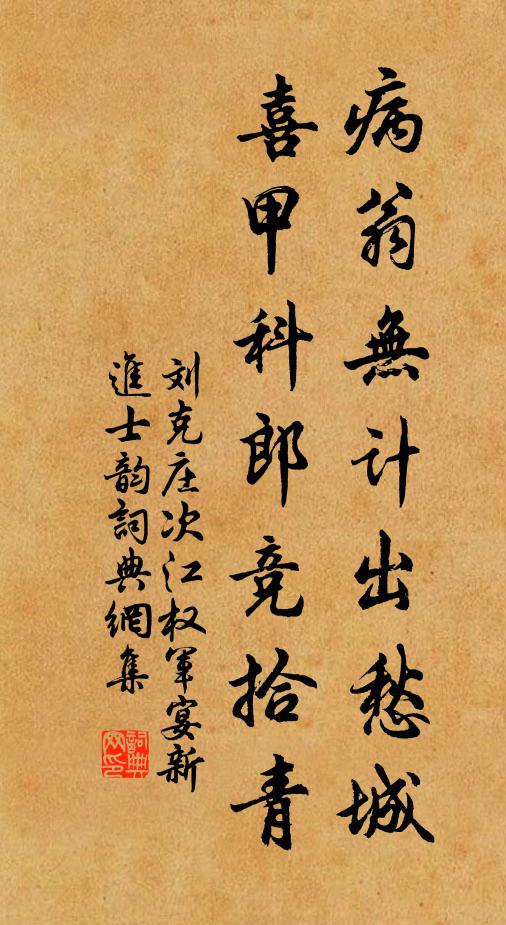 病翁無計出愁城
喜甲科郎竞拾青
刘克庄次江权军宴新
進士韵詞典網集
詞典網印